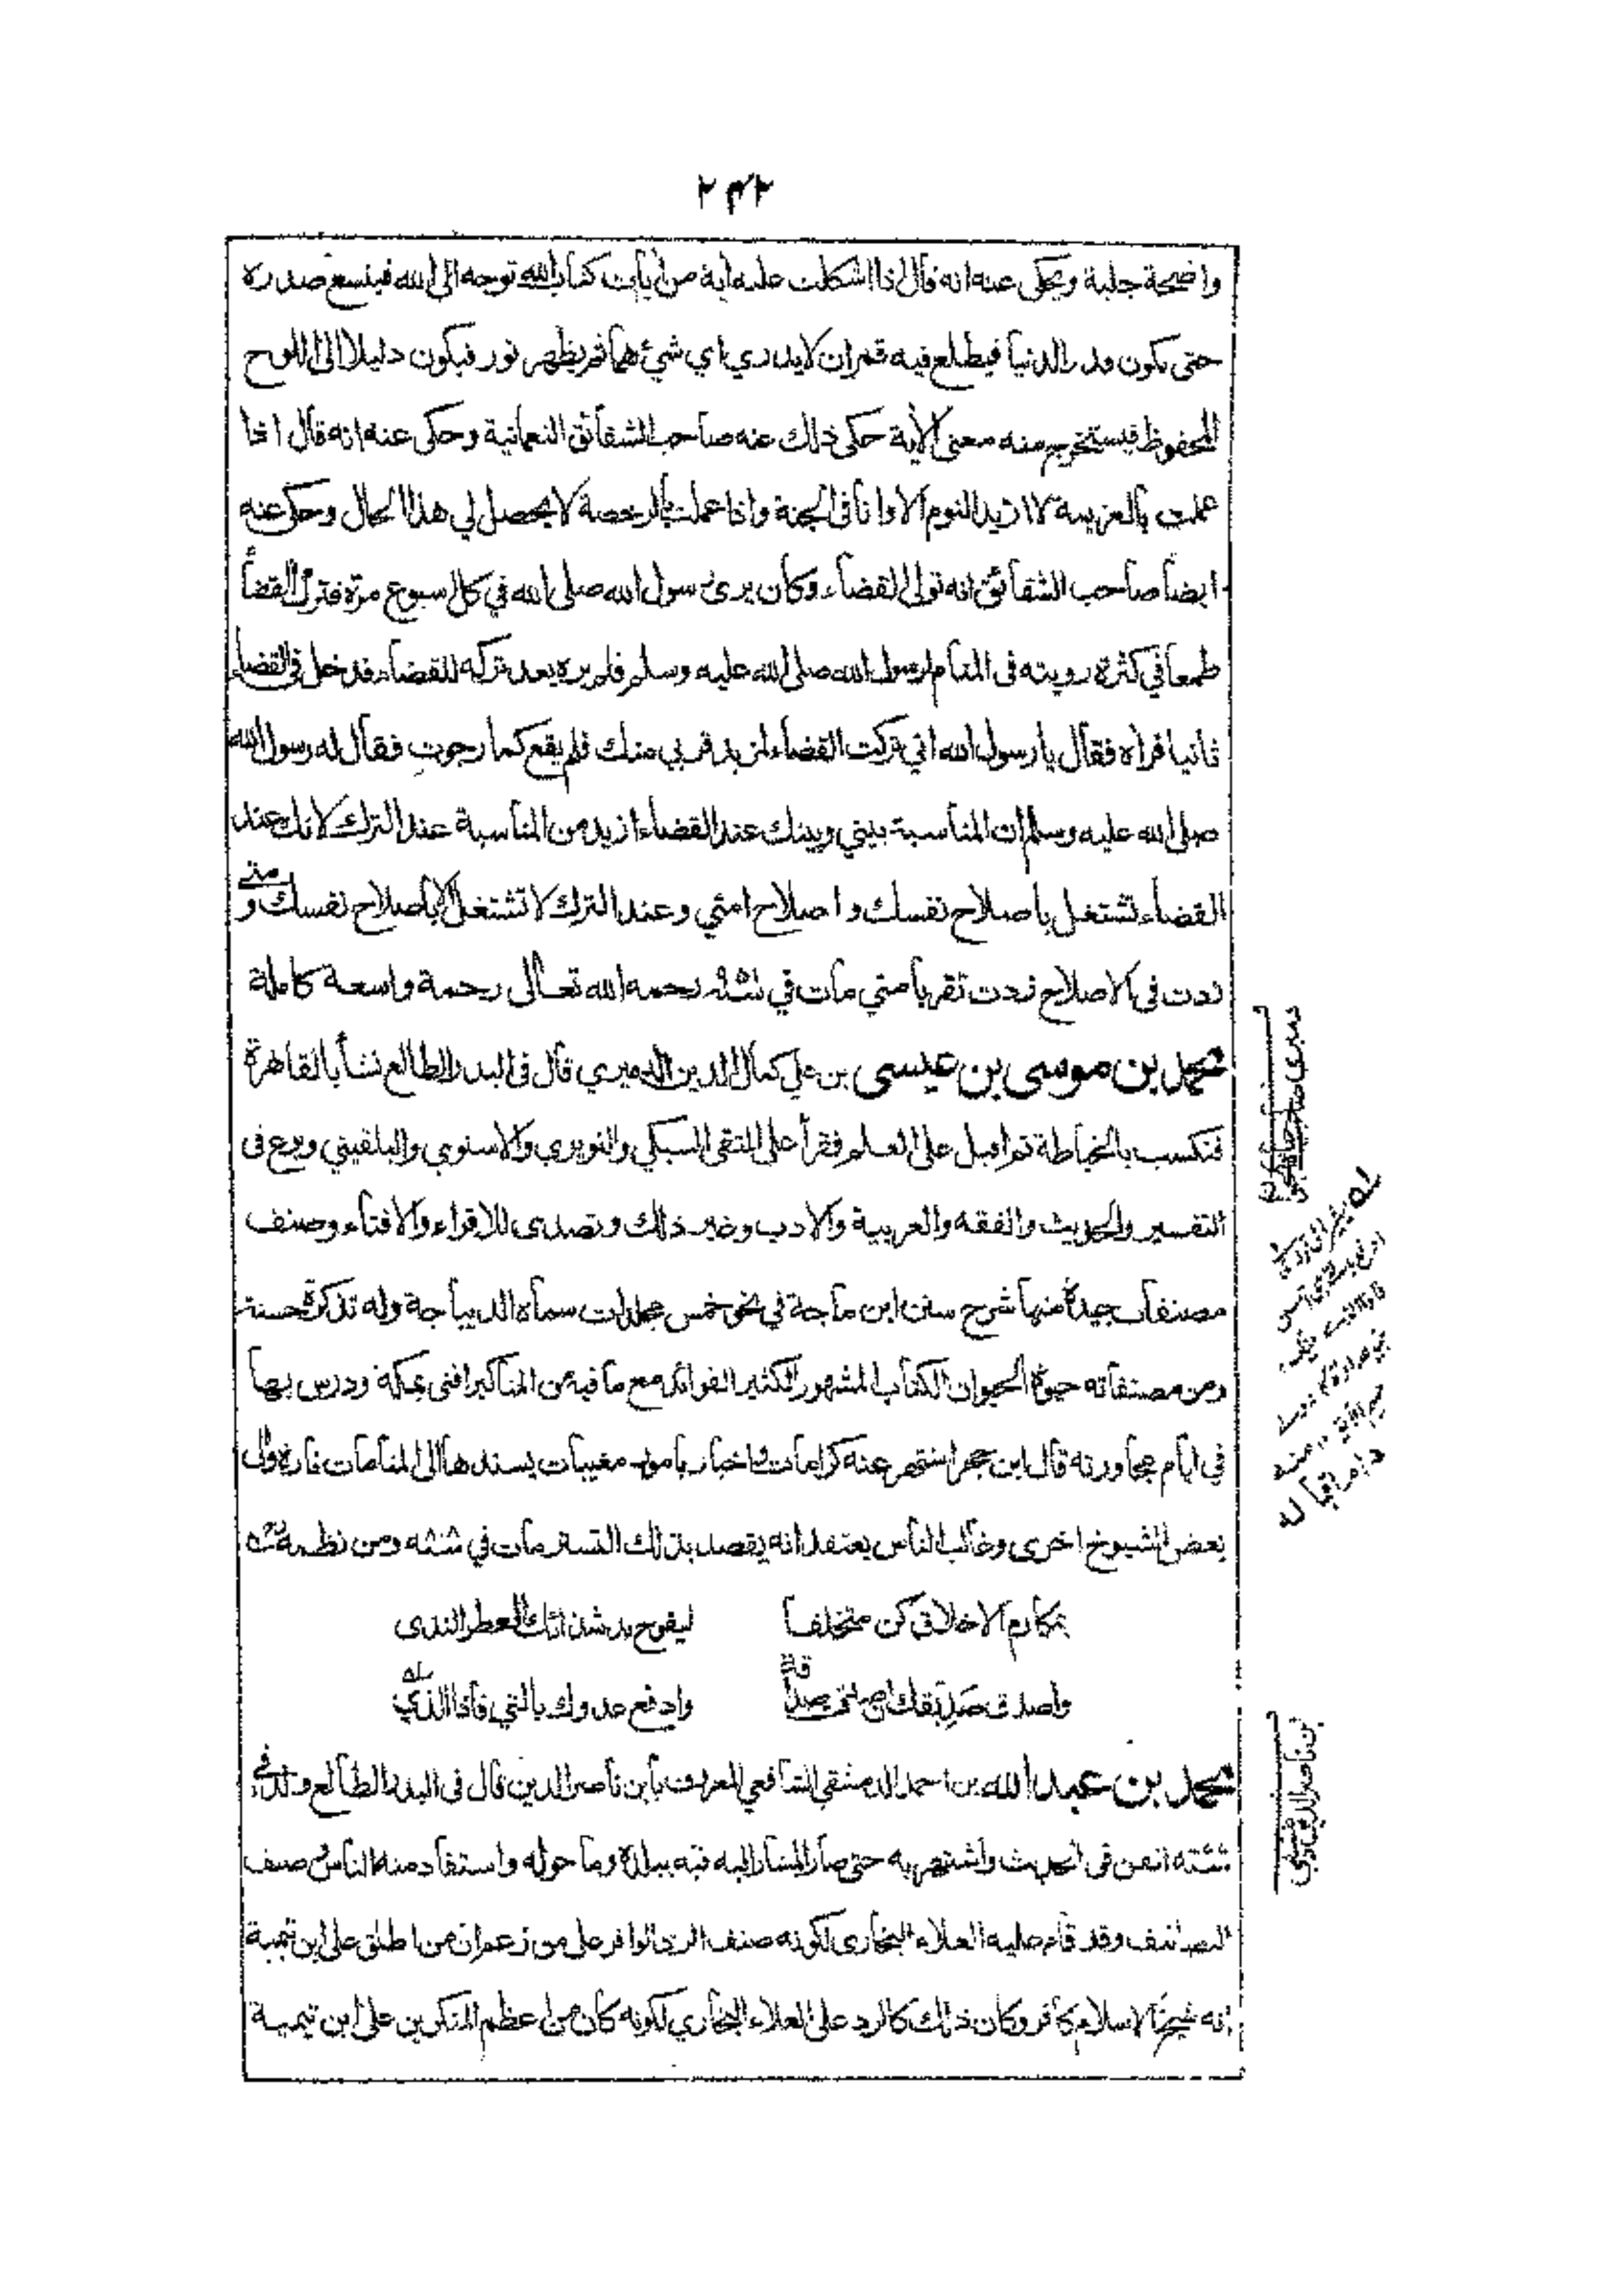 ٢٤٢
واضحة جلية ويحكى عنه انه قال اذا اشكلت عليه اية من ايات كتاب الله توجه الى الله فيتسع صدره
حتى يكون قدر الدنيا فيطلع فيه قمران لا يدري اي شيء هما ثم يظهر نور فيكون دليلا الى اللوح
المحفوظ فيستخرج منه معنى الآية حكى ذلك عنه صاحب الشقائق النعمانية وحكى عنه انه قال اذا
عملت بالعزيمة لا اريد النوم الا وانا فى الجنة واذا عملت بالرخصة لا يحصل لي هذا الحال وحكى عنه
ايضا صاحب الشقائق انه تولى القضاء وكان يرى رسول الله صلى الله في كل اسبوع مرة فترك القضاء
طمعا في كثرة رويته فى المنام لرسول الله صلى الله عليه وسلم فلم يره بعد تركه للقضاء فدخل فى القضاء
ثانيا فراه فقال يا رسول الله اني تركت القضاء لمزيد قربي منك فلم يقع كما رجوت فقال له رسول الله
صلى الله عليه وسلم ان المناسبة بيني وبينك عند القضاء ازيد من المناسبة عند الترك لانك عند
القضاء تشتغل باصلاح نفسك واصلاح امتي وعند الترك لا تشتغل الا باصلاح نفسك ومتى
زدت فى الاصلاح زدت تقربا مني مات في رحمه الله تعالى رحمة واسعة كاملة
محمد بن موسى بن عيسى بن علي كمال الدين الدميري قال فى البدر الطالع نشأ بالقاهرة
فتكسب بالخياطة ثم اقبل على العلم فقرأ على التقى السبكي والنويري والاسنوي والبلقيني وبرع فى
التفسير والحديث والفقه والعربية والادب وغير ذلك وتصدى للاقراء والافتاء وصنف
مصنفات جيدة منها شرح سنن ابن ماجة في نحو خمس مجلدات سماه الديباجة وله تذكرة حسنة
ومن مصنفاته حيوة الحيوان الكتاب المشهور الكثير الفوائد مع ما فيه من المناكير افتى بمكة ودرس بها
في ايام مجاورته قال ابن حجر اشتهر عنه كرامات واخبار بامور مغيبات يسندها الى المنامات تارة والى
بعض الشيوخ اخرى وغالب الناس يعتقد انه يقصد بذلك التستر مات في ومن نظمه
بمكارم الاخلاق كن متخلقا ليفوح ند شذائك العطر الندى
واصدق صديقك ان صدقت صداقة وادفع عدوك بالتي فاذا الذي
محمد بن عبد الله بن احمد الدمشقي الشافعي المعروف بابن ناصر الدين قال فى البدر الطالع ولد في
اتقن فى الحديث واشتهر به حتى صار المشار اليه فيه ببلده وما حوله واستفاد منه الناس وصنف
التصانيف وقد قام عليه العلاء البخارى لكونه صنف الرد الوافر على من زعم ان من اطلق على ابن تيمية
انه شيخ الاسلام كافر وكان ذلك كالرد على العلاء البخاري لكونه كان من اعظم المنكرين على ابن تيمية
دميرى صاحب
بن ناصر الدين